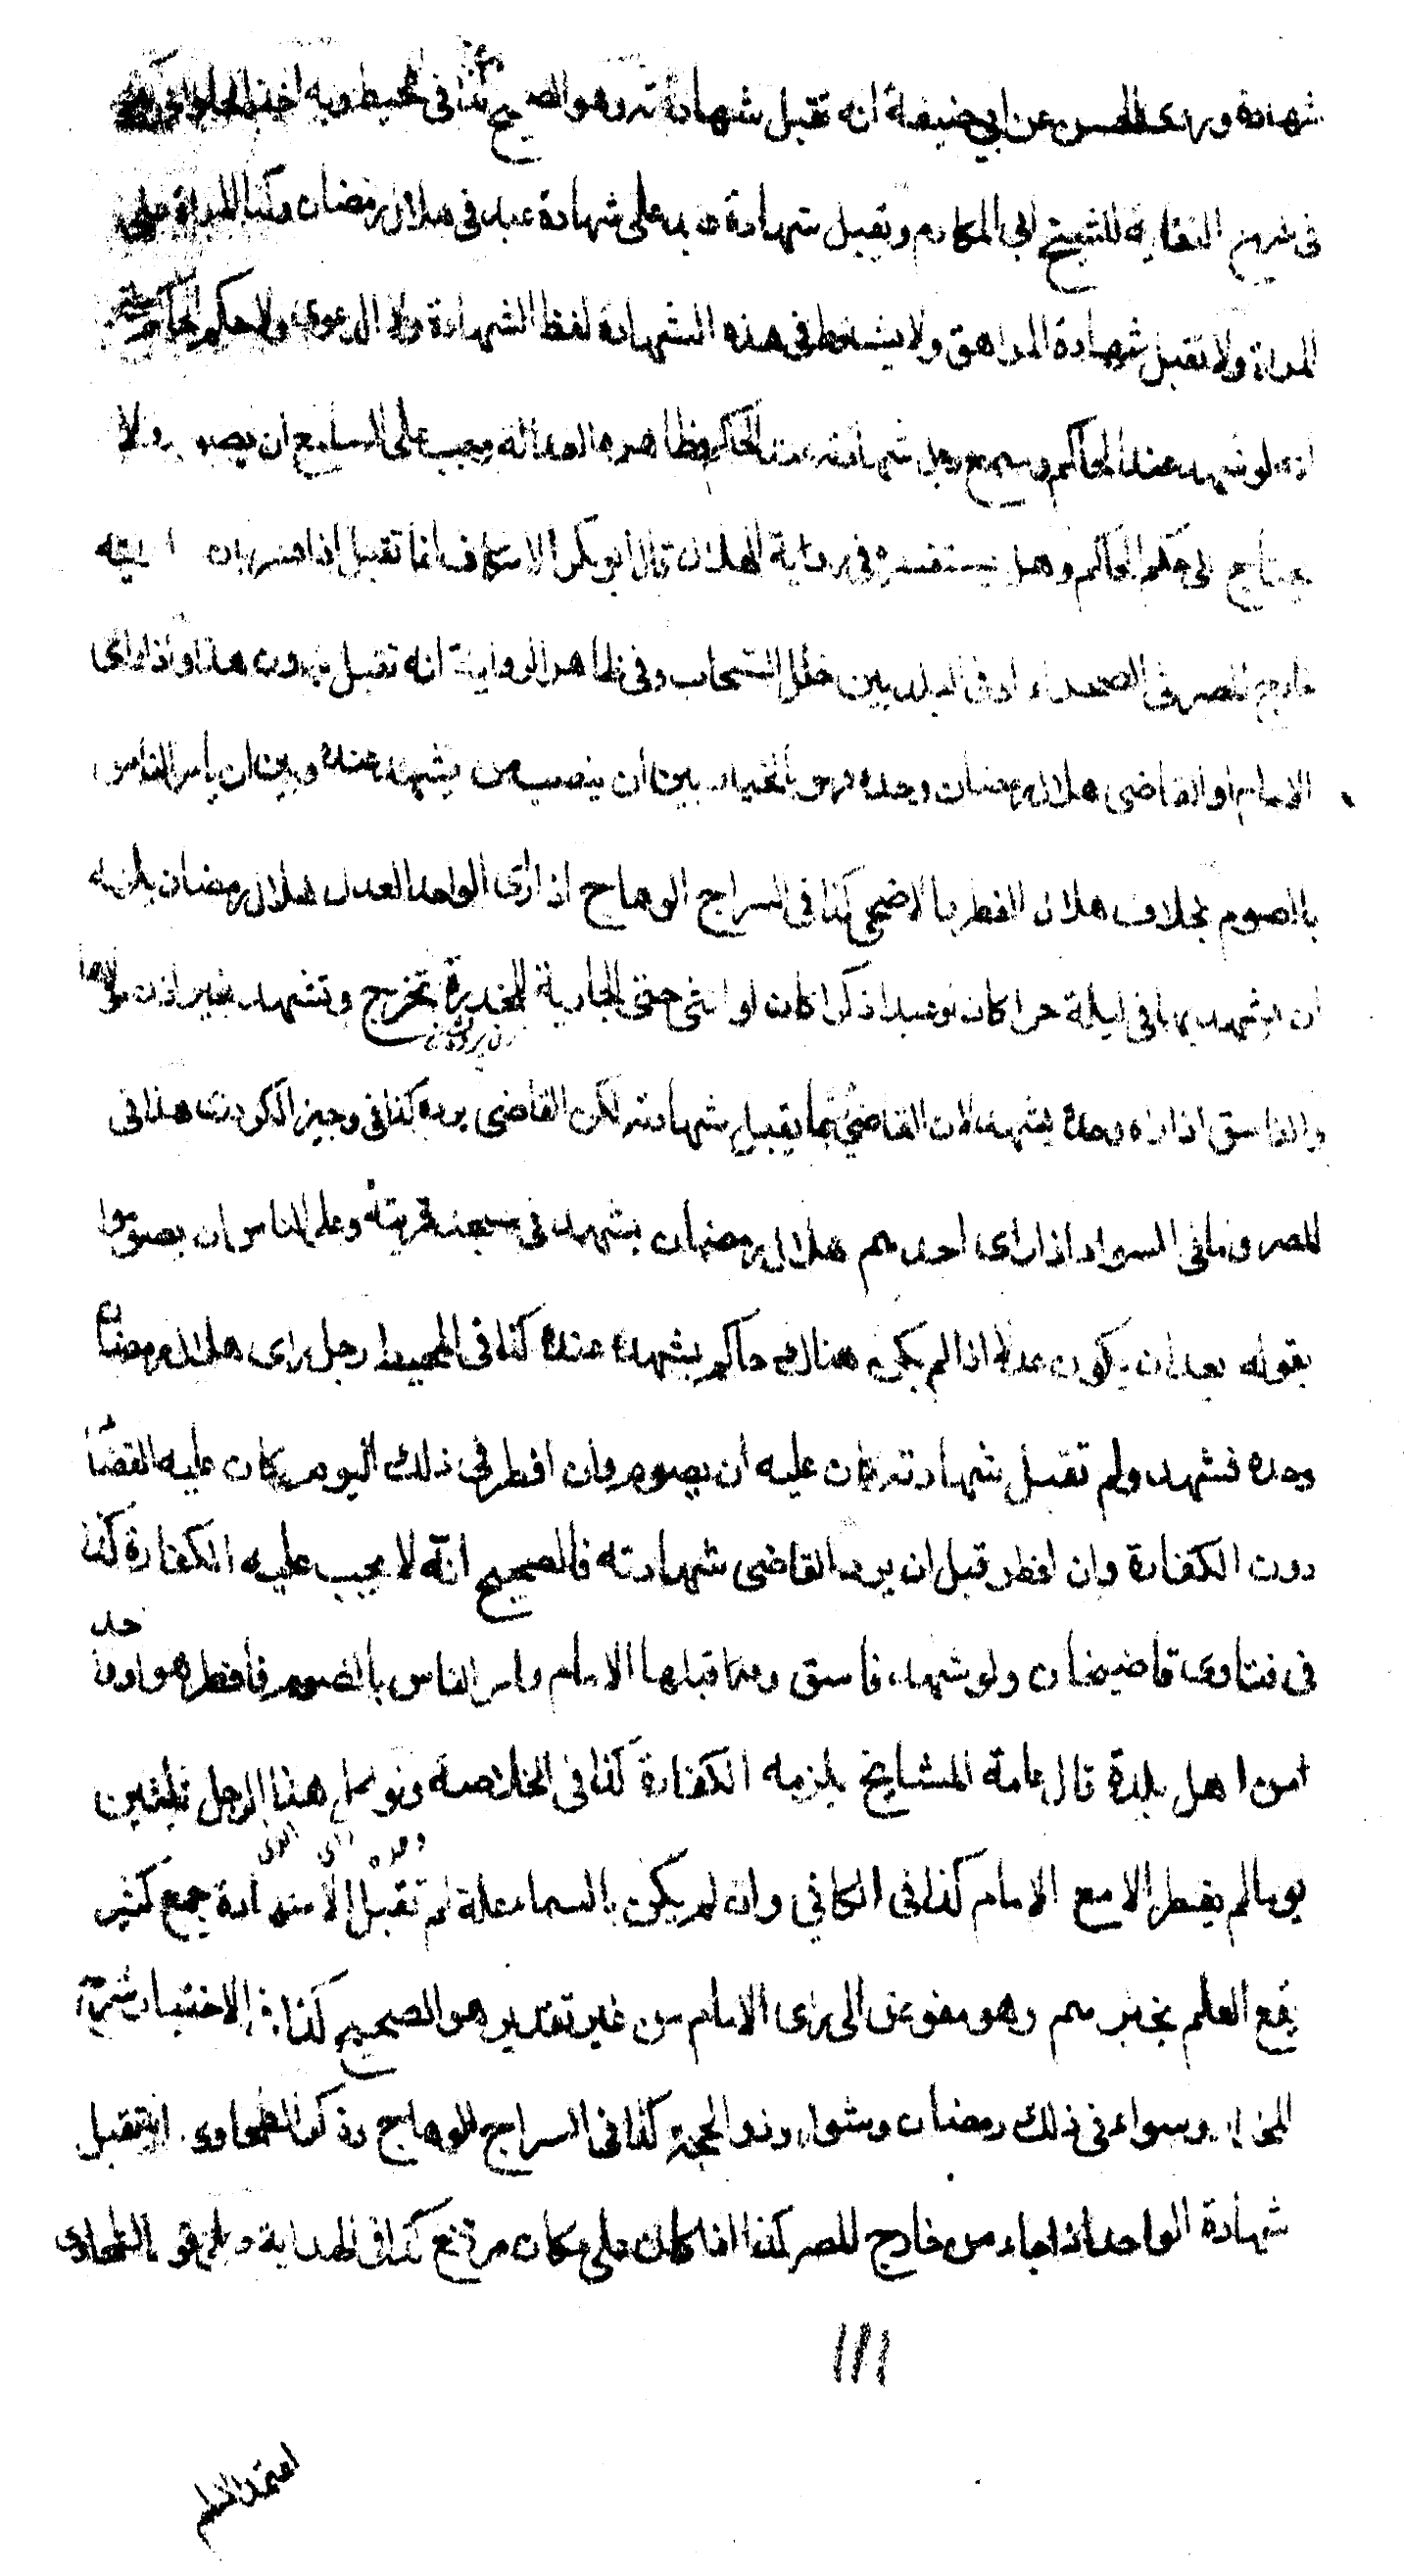 شهادة وروى الحسن عن ابي حنيفة انه تقبل شهادته وهو الصحيح كذا في المحيط وبه اخذ الحلواني كذا
في شرح النقاية للشيخ ابي المكارم وتقبل شهادة عبد على شهادة عبد في هلال رمضان وكذا المراة على
المراة ولا تقبل شهادة المراهق ولا يشترط في هذه الشهادة لفظ الشهادة ولا الدعوى ولا حكم الحاكم حتى
انه لو شهد عند الحاكم وسمع رجل شهادته عند الحاكم وظاهره العدالة وجب على السامع ان يصوم ولا
يحتاج الى حكم الحاكم وهل يستفسره في رؤية الهلال قال ابو بكر الاسكاف انما تقبل اذا فسر بان رايته
خارج المصر في الصحراء او في البلد بين خلل السحاب وفي ظاهر الرواية انه تقبل بدون هذا واذا راى
الامام او القاضي هلال رمضان وحده فهو بالخيار بين ان ينصب من يشهد عنده وبين ان يأمر الناس
بالصوم بخلاف هلال الفطر والاضحى كذا في السراج الوهاج اذا راى الواحد العدل هلال رمضان يلزمه
ان يشهد بها في ليلة حرا كان او عبدا ذكرا كان او انثى حتى الجارية المخدرة تخرج وتشهد بغير اذن مولاها
والفاسق اذا راه وحده يشهد لان القاضي ربما يقبل شهادته لكن القاضي يرده كذا في وجيز الكردري هذا في
المصر واما في السواد اذا راى احدهم هلال رمضان يشهد في مسجد قريته وعلى الناس ان يصوموا
بقوله بعد ان يكون عدلا اذا لم يكن هناك حاكم يشهد عنده كذا في المحيط رجل راى هلال رمضان
وحده فشهد ولم تقبل شهادته كان عليه ان يصوم وان افطر في ذلك اليوم كان عليه القضاء
دون الكفارة وان افطر قبل ان يرد القاضي شهادته فالصحيح انه لا يجب عليه الكفارة كذا
في فتاوى قاضيخان ولو شهد فاسق وقبلها الامام وامر الناس بالصوم فافطر هو او واحد
من اهل بلدة قال عامة المشايخ يلزمه الكفارة كذا في الخلاصة ولو اكمل هذا الرجل ثلثين
يوما لم يفطر الا مع الامام كذا في الكافي وان لم يكن بالسماء علة لم تقبل الا شهادة جمع كثير
يقع العلم بخبرهم وهو مفوض الى راى الامام من غير تقدير هو الصحيح كذا في الاختيار شرح
المختار وسواء في ذلك رمضان وشوال وذو الحجة كذا في السراج الوهاج وذكر الطحاوى انه تقبل
شهادة الواحد اذا جاء من خارج المصر كذا اذا كان على مكان مرتفع كذا في الهداية وعلى قول الطحاوى